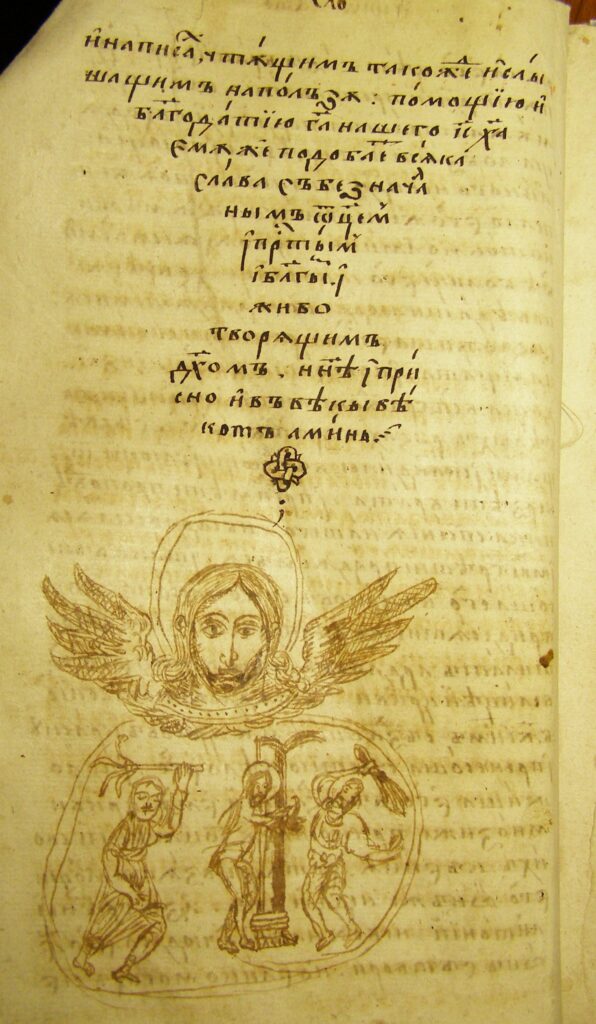 и҆написа, чтѫщимъ такоже и҆слы
шащимъ наполъзѫ : помощїю и҆
бл҃года́тїю га҃ нашего і҆ѵ х҃а
є҆мꙋже подобае́ всѣка
сла́ва събезнача
нымъ ѿц҃ем
і҆пр҃ты́м
і҆бл҃гы́.і҆
живо
творѧщимъ
дх҃омъ . ннѣ і҆при
сно и҆въвѣкы вѣ
кѡмъ ами́нь